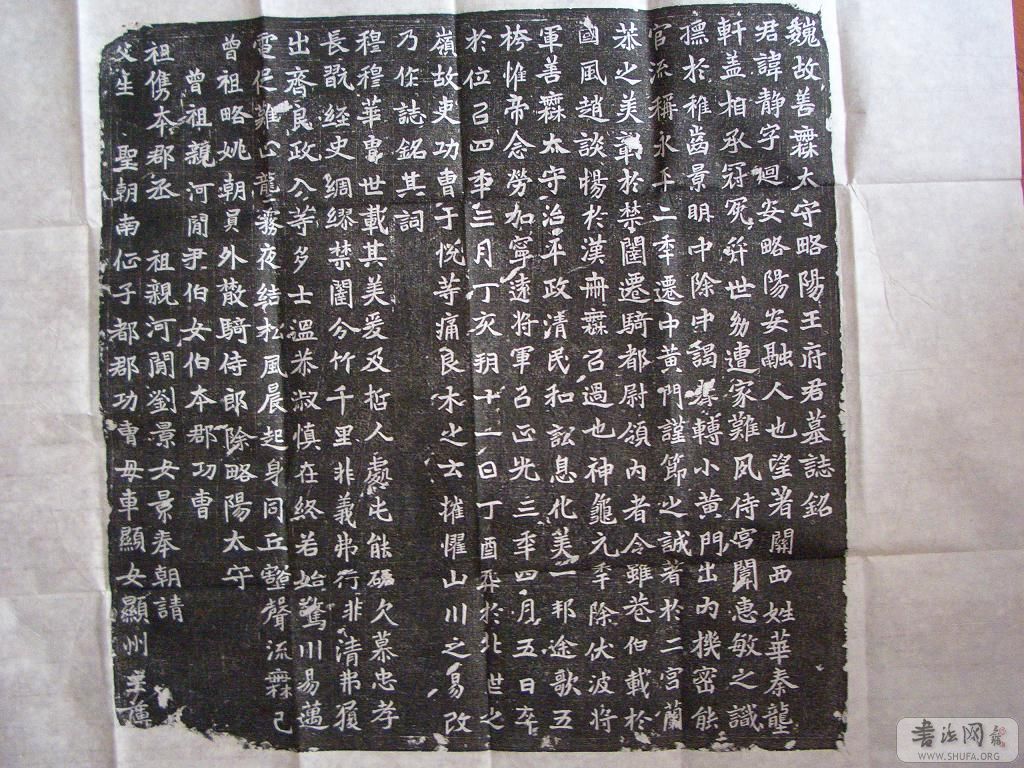 魏故善無太守略陽王府君墓誌銘
君諱静字迴安略陽安融人也望著關西姓華秦龍
軒盖相承冠冕弈世幼遭家難夙侍宮闈惠敏之識
摽於稚齒景明中除中謁者轉小黄門出内機密能
官流稱永平二季遷中黄門謹節之誠著於二宮蘭
恭之美彰於禁闈遷騎都尉領内者令雖巷伯載於
國風趙談惕於漢冊無召過也神龜元季除伏波將
軍善無太守治平政清民和訟息化美一邦途歌五
袴惟帝念勞加寧遠將軍召正光三季四月五日卒
於位召四季三月丁亥朔十一日丁酉葬於北世之
嶺故吏功曹于悦等痛良木之云摧懼山川之易改
乃作誌銘其詞
穆穆華曹世載其美爰及哲人處屯能碩欠慕忠孝
長翫經史綢繆禁闈分竹千里非義弗行非清弗履
出齊良政入等多士溫恭淑慎在終若始驚川易邁
電促難止龍霧夜结松風晨起身同丘壑聲流無已
曾祖略姚朝員外散騎侍郎除略陽太守
曾祖親河間尹伯女伯本郡功曹
祖儁本郡丞 祖親河間劉景女景奉朝請
父生 聖朝南征子都郡功曹母車顯女顯州主簿
書法网
WWW.SHUFA.ORG